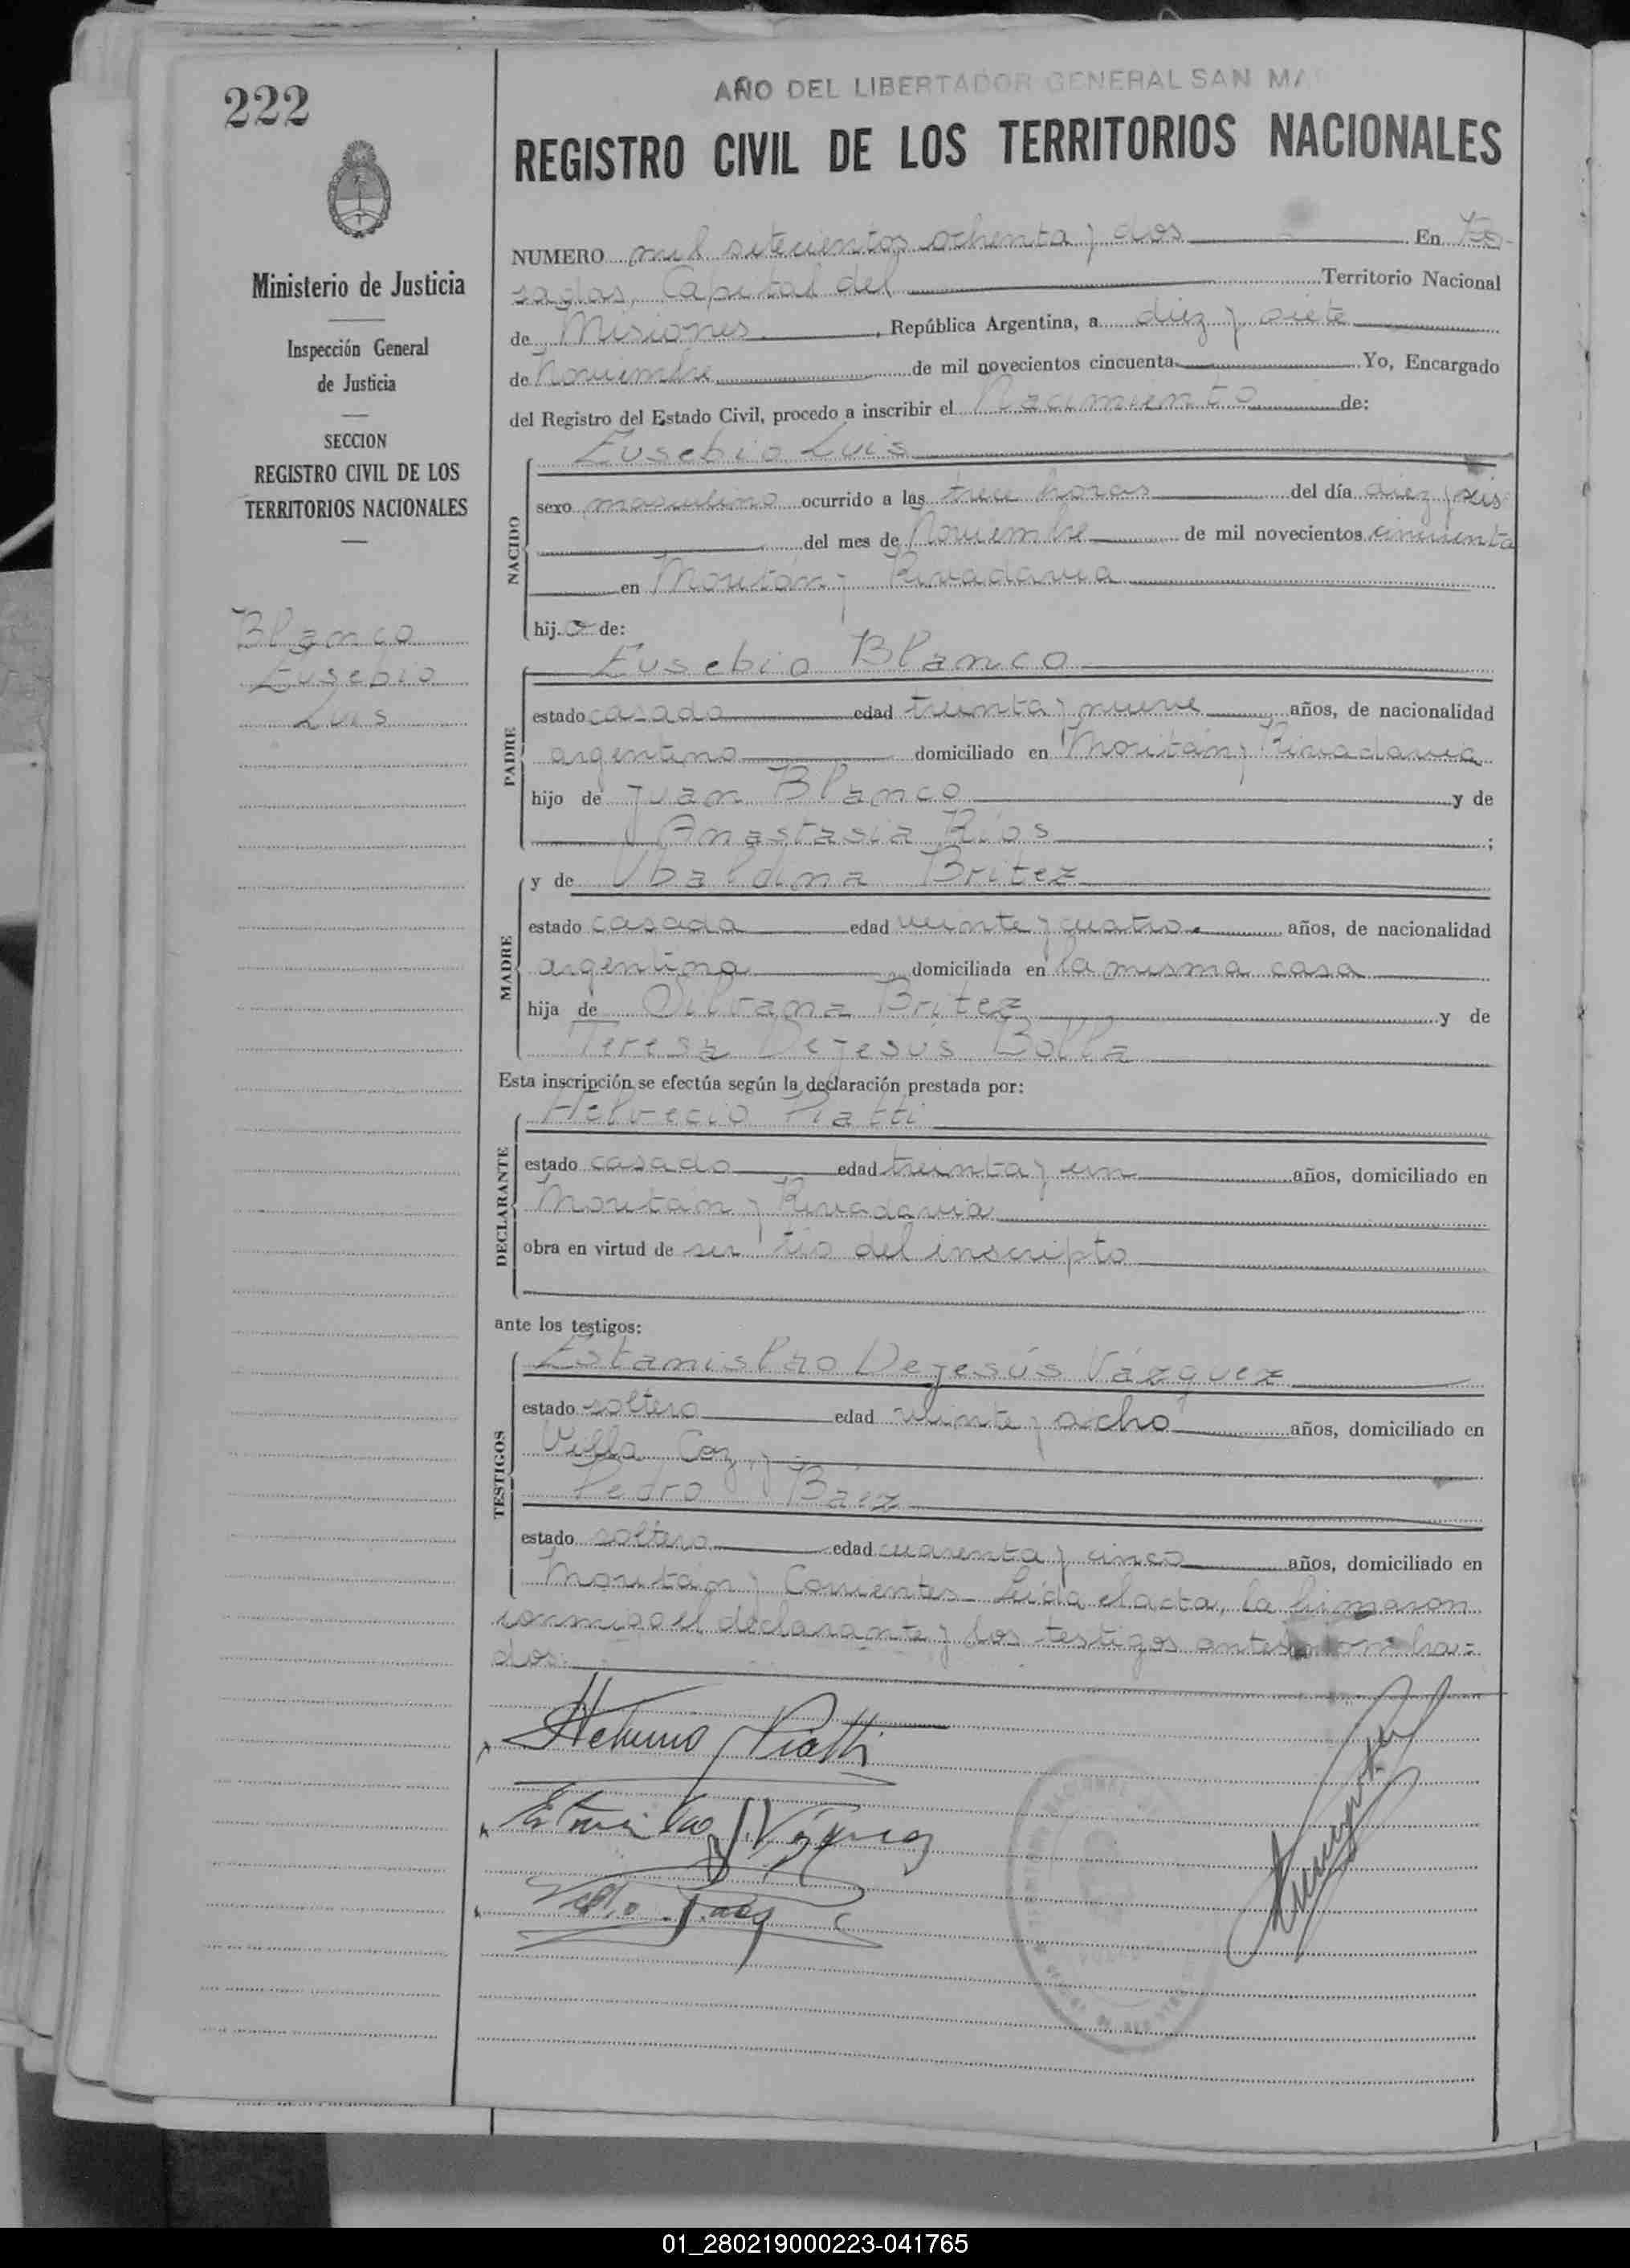 222
AÑO DEL LIBERTADOR GENERAL SAN MA
REGISTRO CIVIL DE LOS TERRITORIOS NACIONALES
Ministerio de Justicia
Inspección General
de Justicia
SECCION
REGISTRO CIVIL DE LOS
TERRITORIOS NACIONALES
Blanco
Eusebio
Luis
NUMERO mil setecientos ochenta y dos En Po-
sadas, Capital del Territorio Nacional
de Misiones, República Argentina, a diez y siete
de Noviembre de mil novecientos cincuenta Yo, Encargado
del Registro del Estado Civil, procedo a inscribir el Nacimiento de:
NACIDO
Eusebio Luis
sexo masculino ocurrido a las trece horas del día diez y seis
del mes de Noviembre de mil novecientos cincuenta
en Moritán y Rivadavia
hijo de:
PADRE
Eusebio Blanco
estado casado edad treinta y nueve años, de nacionalidad
argentino domiciliado en Moritán y Rivadavia
hijo de Juan Blanco y de
Anastasia Ríos;
MADRE
y de Ubaldina Britez
estado casada edad veinte y cuatro años, de nacionalidad
argentina domiciliada en la misma casa
hija de Silvana Britez y de
Teresa Dejesús Bolla
Esta inscripción se efectúa según la declaración prestada por:
DECLARANTE
Helvecio Piatti
estado casado edad treinta y un años, domiciliado en
Moritán y Rivadavia
obra en virtud de ser tío del inscripto
ante los testigos:
TESTIGOS
Estanislao Dejesús Vázquez
estado soltero edad veinte y ocho años, domiciliado en
Villa
Pedro Báez
estado soltero edad cuarenta y cinco años, domiciliado en
Moritán y Corrientes Leída el acta, la firmaron
conmigo el declarante y los testigos antes nombra=
dos.
Helvecio Piatti
01_280219000223-041765